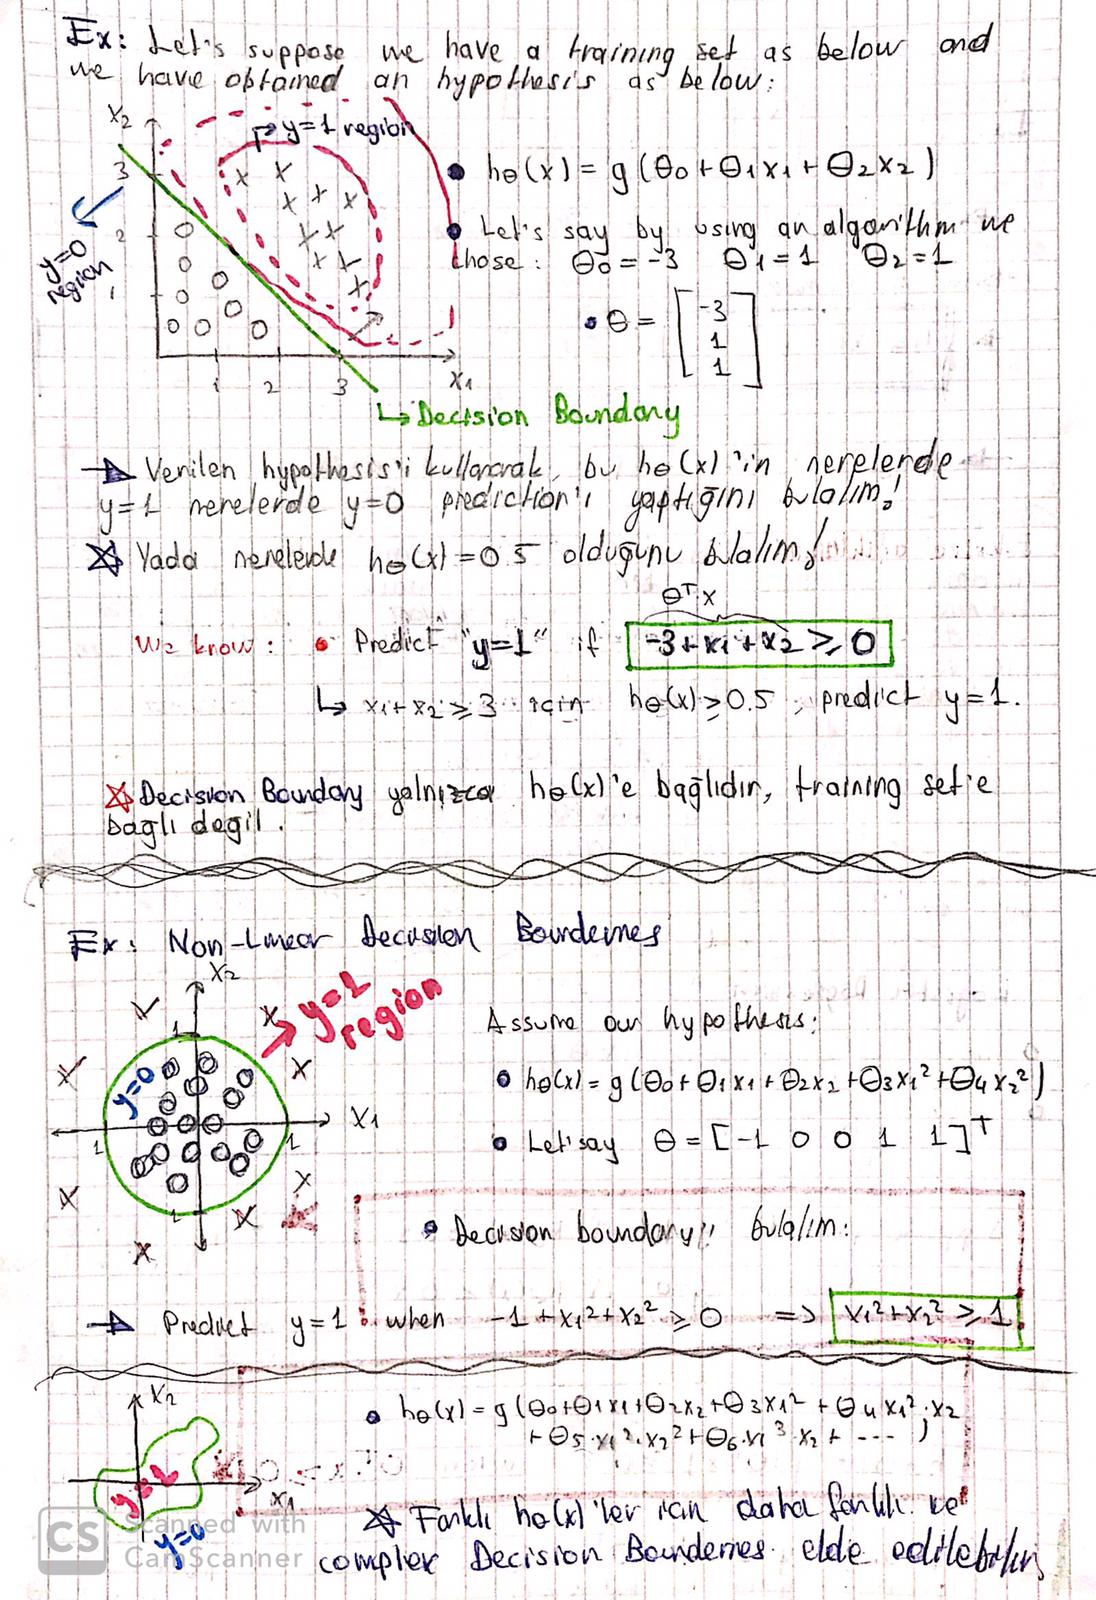 Ex: Let's suppose we have a training set as below and
we have obtained an hypothesis as below:
X2
y=1 region
3
2
1
y=0
region
1 2 3
X1
Decision Boundary
hθ(x) = g(θ0+θ1x1+θ2x2)
Let's say by using an algorithm we
chose: θ0=-3 θ1=1 θ2=1
θ = [-3
1
1]
Verilen hypothesis'i kullanarak, bu hθ(x)'in nerelerde
y=1 nerelerde y=0 prediction'ı yaptığını bulalım!
Yada nerelerde hθ(x)=0.5 olduğunu bulalım!
θᵀx
We know: Predict "y=1" if -3+x1+x2 ≥ 0
x1+x2 ≥ 3 için hθ(x) ≥ 0.5, predict y=1.
Decision Boundary yalnızca hθ(x)'e bağlıdır, training set'e
bağlı değil.
Ex: Non-Linear Decision Bounderies
X2
y=1
region
1
y=0
X1
1
1
1
Assume our hypothesis:
hθ(x) = g(θ0+θ1x1+θ2x2+θ3x1²+θ4x2²)
Let'say θ = [-1 0 0 1 1]ᵀ
Decision boundary'i bulalım:
Predict y=1 when -1+x1²+x2² ≥ 0 => x1²+x2² ≥ 1
X2
X1
y=1
y=0
hθ(x) = g(θ0+θ1x1+θ2x2+θ3x1²+θ4x1².x2
+θ5.x1².x2²+θ6.x1³.x2+ ---- )
Farklı hθ(x)'ler için daha farklı ve
complex Decision Bounderies elde edilebilir.
CS Scanned with
CamScanner